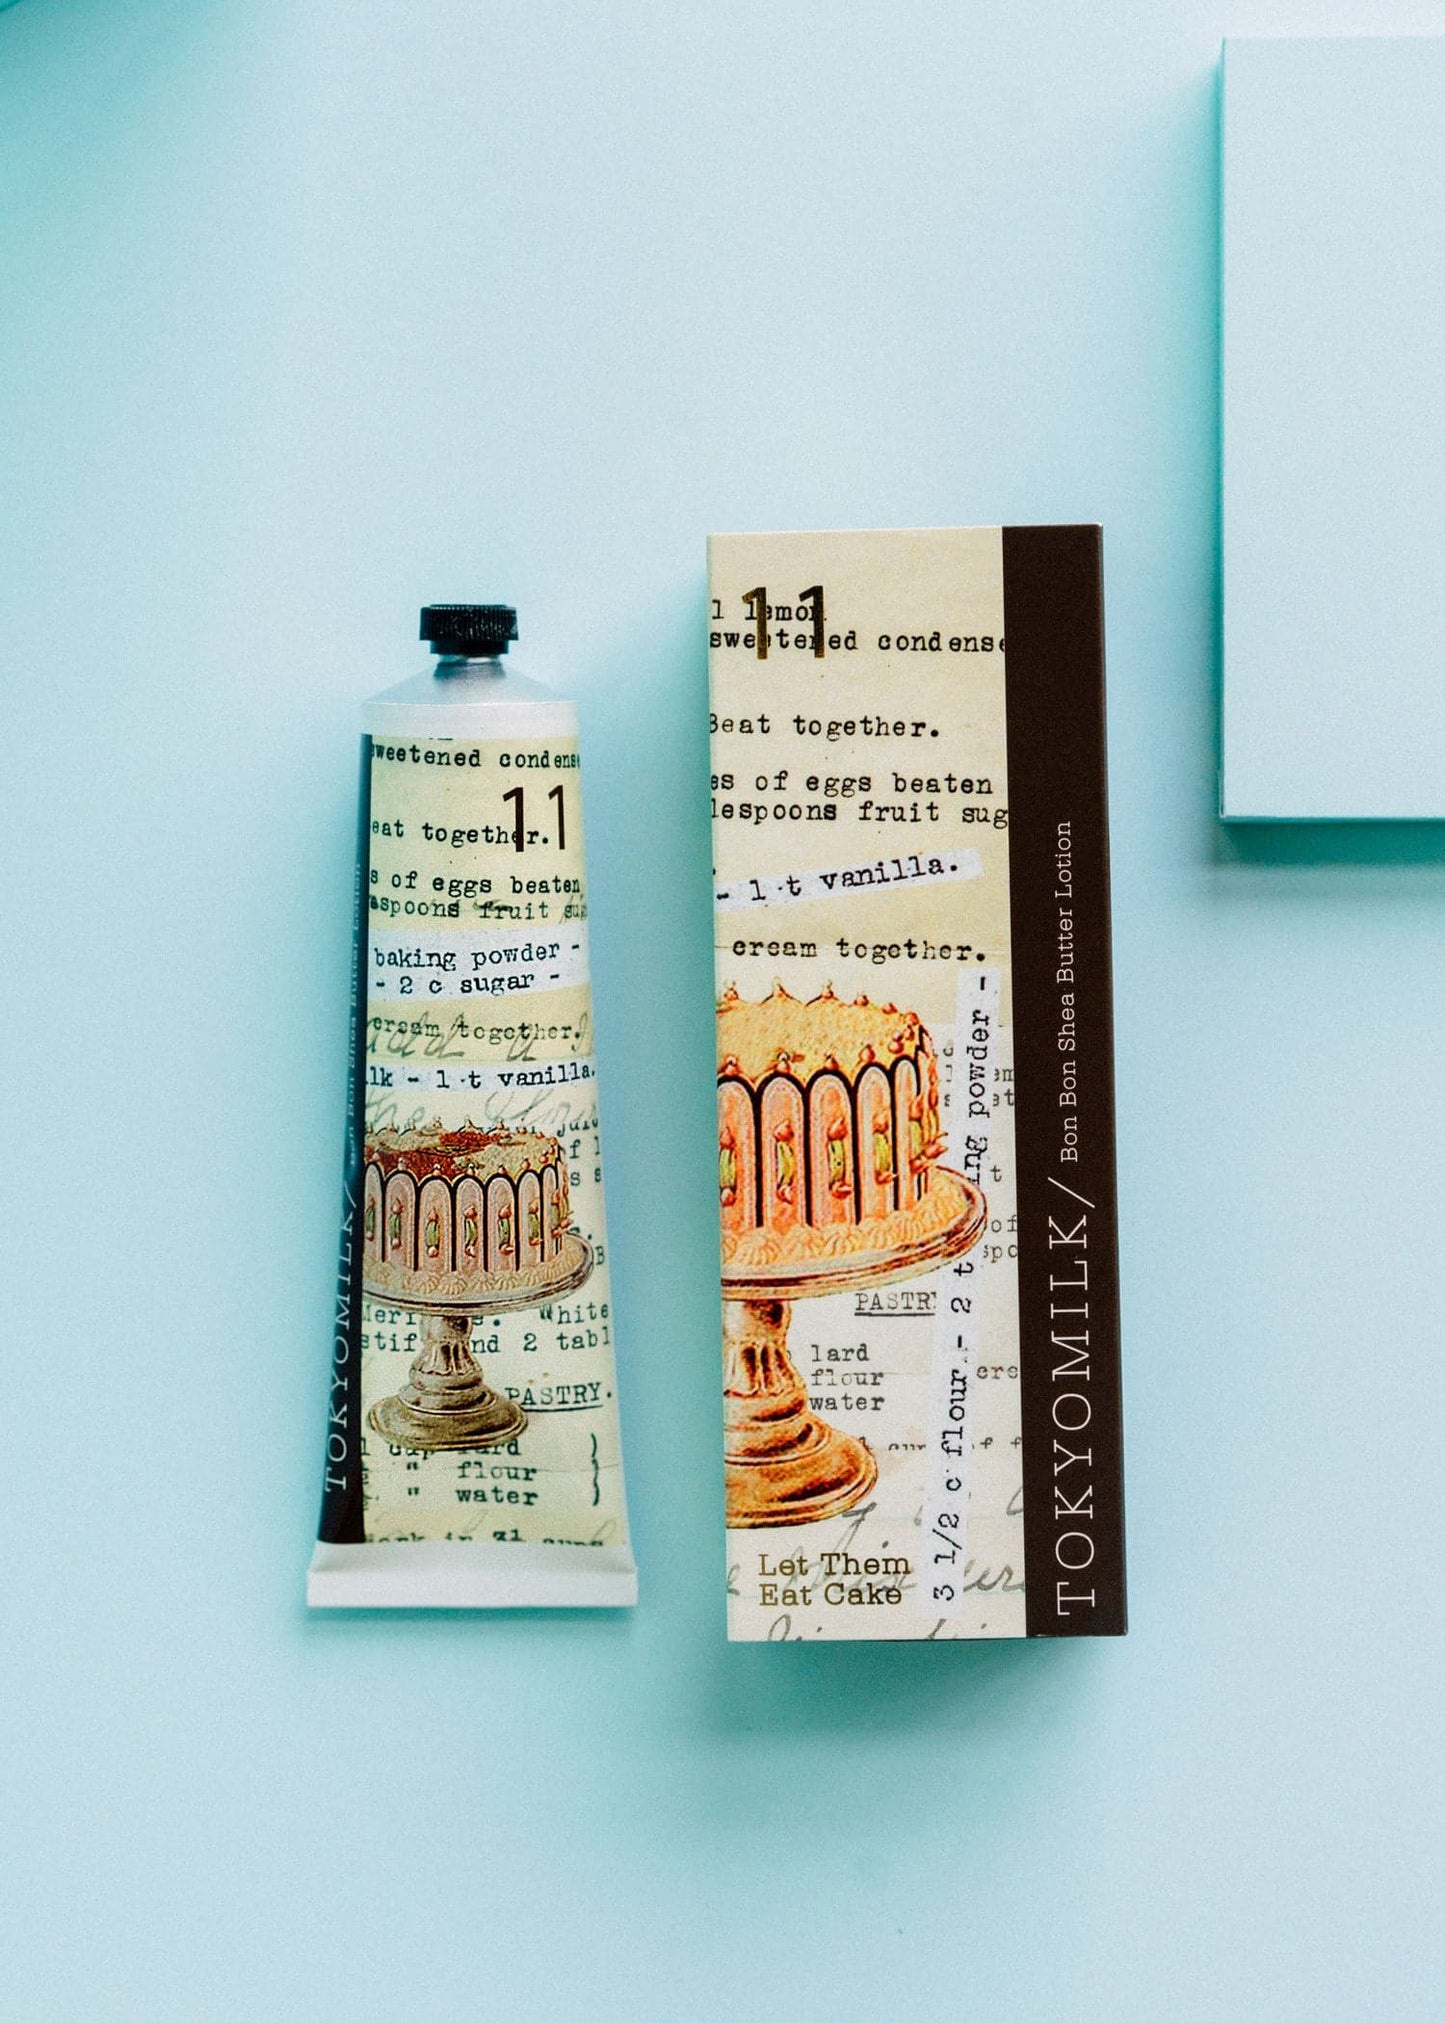 sweetened condens
11
eat together.
s of eggs beaten
spoons fruit
baking powder -
- 2 c sugar -
cream together.
lk - 1 t vanilla.
White
stif nd 2 tabl
PASTRY.
1 cup lard )
" flour
" water )
TOKYOMILK/ Bon Bon Shea Butter Lotion
11
1 lemon
sweetened condense
Beat together.
es of eggs beaten
lespoons fruit sug
- 1 t vanilla.
cream together.
PASTR
lard
flour
water
3 1/2 c flour - 2 t ing powder -
Let Them
Eat Cake
TOKYOMILK/ Bon Bon Shea Butter Lotion